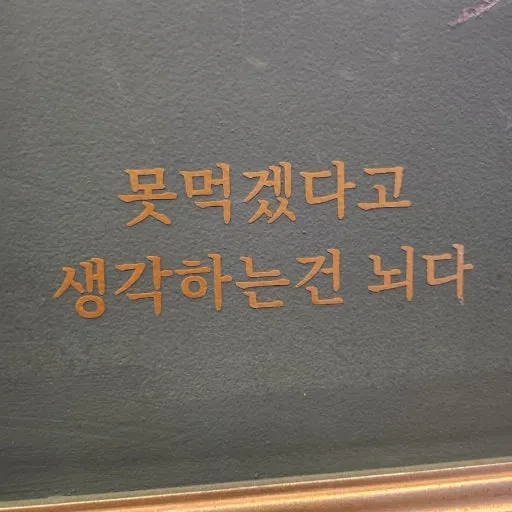 못먹겠다고
생각하는건 뇌다